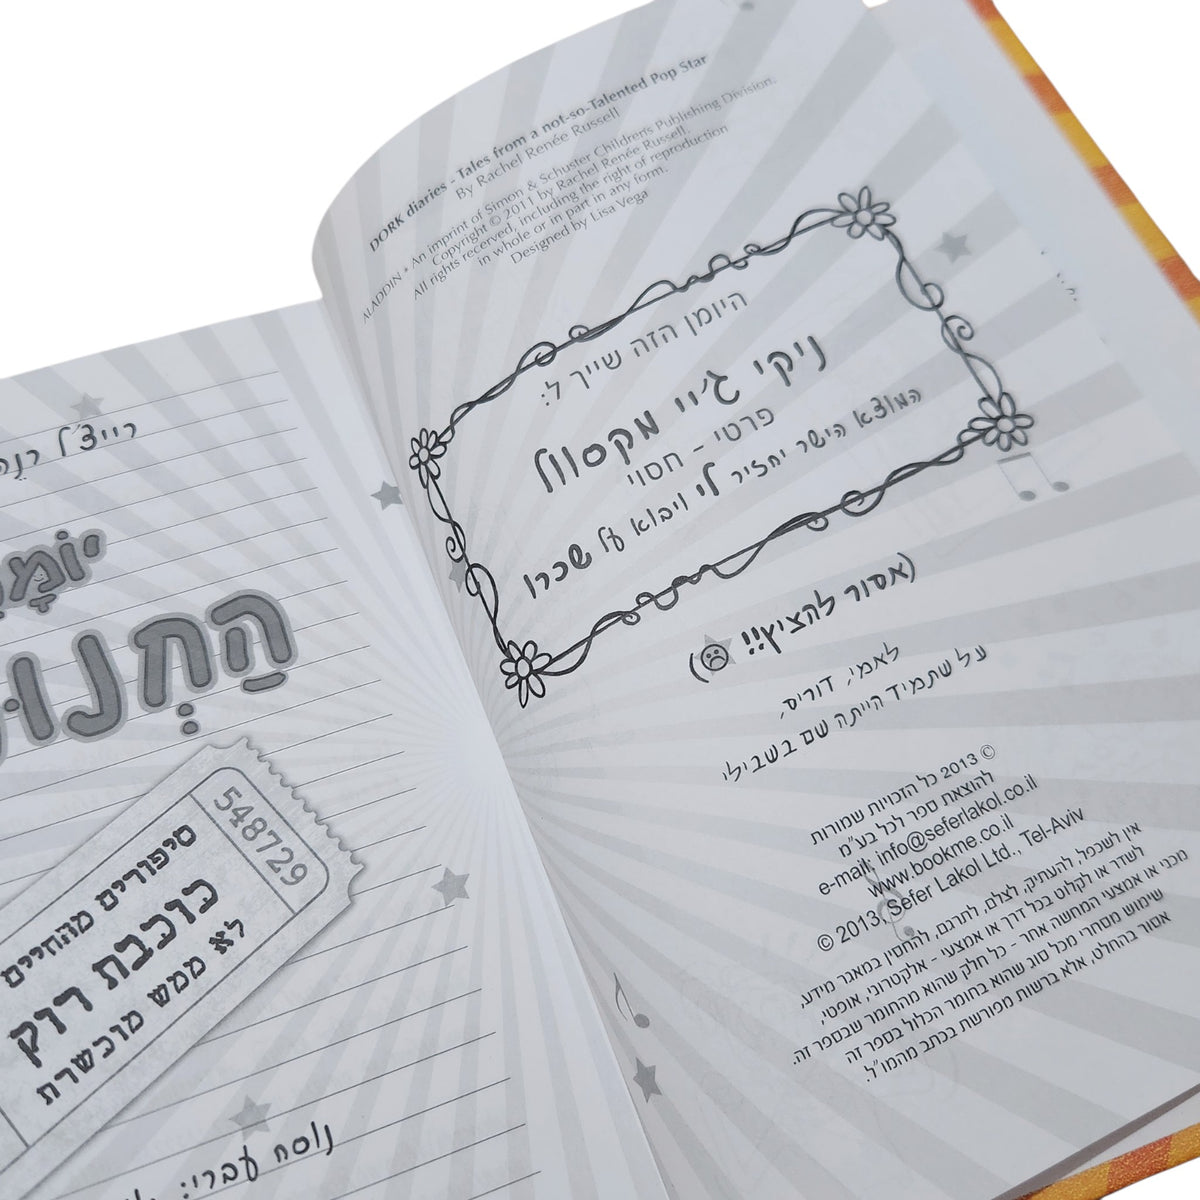 DORK diaries - Tales from a not-so-Talented Pop Star
By Rachel Renée Russell
ALADDIN • An imprint of Simon & Schuster Children's Publishing Division.
Copyright © 2011 by Rachel Renée Russell.
All rights recerved, including the right of reproduction
in whole or in part in any form.
Designed by Lisa Vega
היומן הזה שייך ל:
ניקי ג׳יי מקסוול
פרטי - חסוי
המוצא הישר יחזיר לי ויבוא על שכרו
(אסור להציץ!!)
לאמי, דוריס,
על שתמיד הייתה שם בשבילי
© 2013 כל הזכויות שמורות
להוצאת ספר לכל בע"מ
e-mail: info@seferlakol.co.il
www.bookme.co.il
© 2013, Sefer Lakol Ltd., Tel-Aviv
אין לשכפל, להעתיק, לצלם, לתרגם, להחסין במאגר מידע,
לשדר או לקלוט בכל דרך או אמצעי - אלקטרוני, אופטי,
מכני או אמצעי המחשה אחר - כל חלק שהוא מהחומר שבספר זה.
שימוש מסחרי מכל סוג שהוא בחומר הכלול בספר זה
אסור בהחלט, אלא ברשות מפורשת בכתב מהמו"ל.
רייצ'ל
548729
סיפורים מהחיים
כוכבת רוק
לא ממש מוכשרת
נוסח עברי: